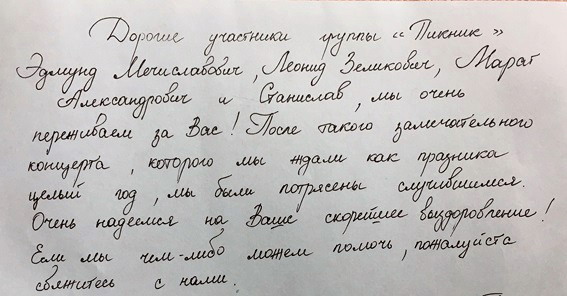 Дорогие участники группы «Пикник»
Эдмунд Мечиславович, Леонид Зеликович, Марат
Александрович и Станислав, мы очень
переживаем за Вас! После такого замечательного
концерта, которого мы ждали как празника
целый год, мы были потрясены случившимся.
Очень надеемся на Ваше скорейшее выздоровление!
Если мы чем-либо можем помочь, пожалуйста
свяжитесь с нами.